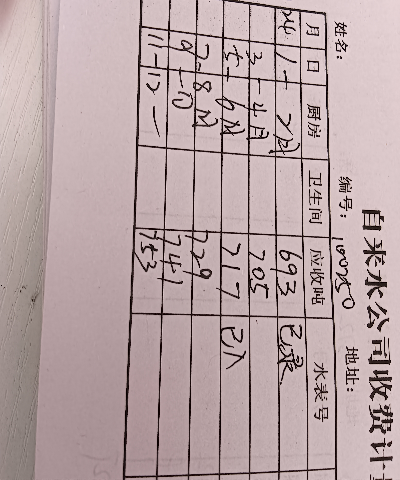 自来水公司收费计
姓名： 编号：1007250 地址：
月 日 厨房 卫生间 应收吨 水表号
24 1-2月 693 已录
3-4月 705
5-6月 717 已入
7-8月 729
9-10 741
11-12 753